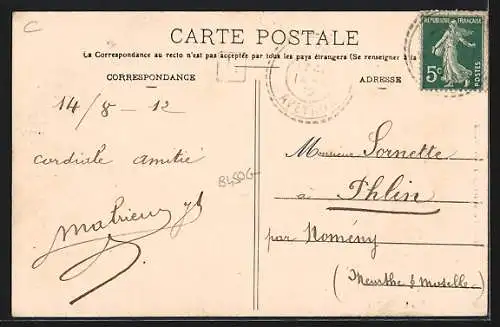 C
CARTE POSTALE
La Correspondance au recto n'est pas acceptée par tous les pays étrangers (Se renseigner à la
CORRESPONDANCE
ADRESSE
REPUBLIQUE FRANÇAISE
5c
POSTES
AVEYRON
14/8-12
cordiale amitié
Monsieur Sornette
à Phlin
par Nomény
(Meurthe & Moselle)